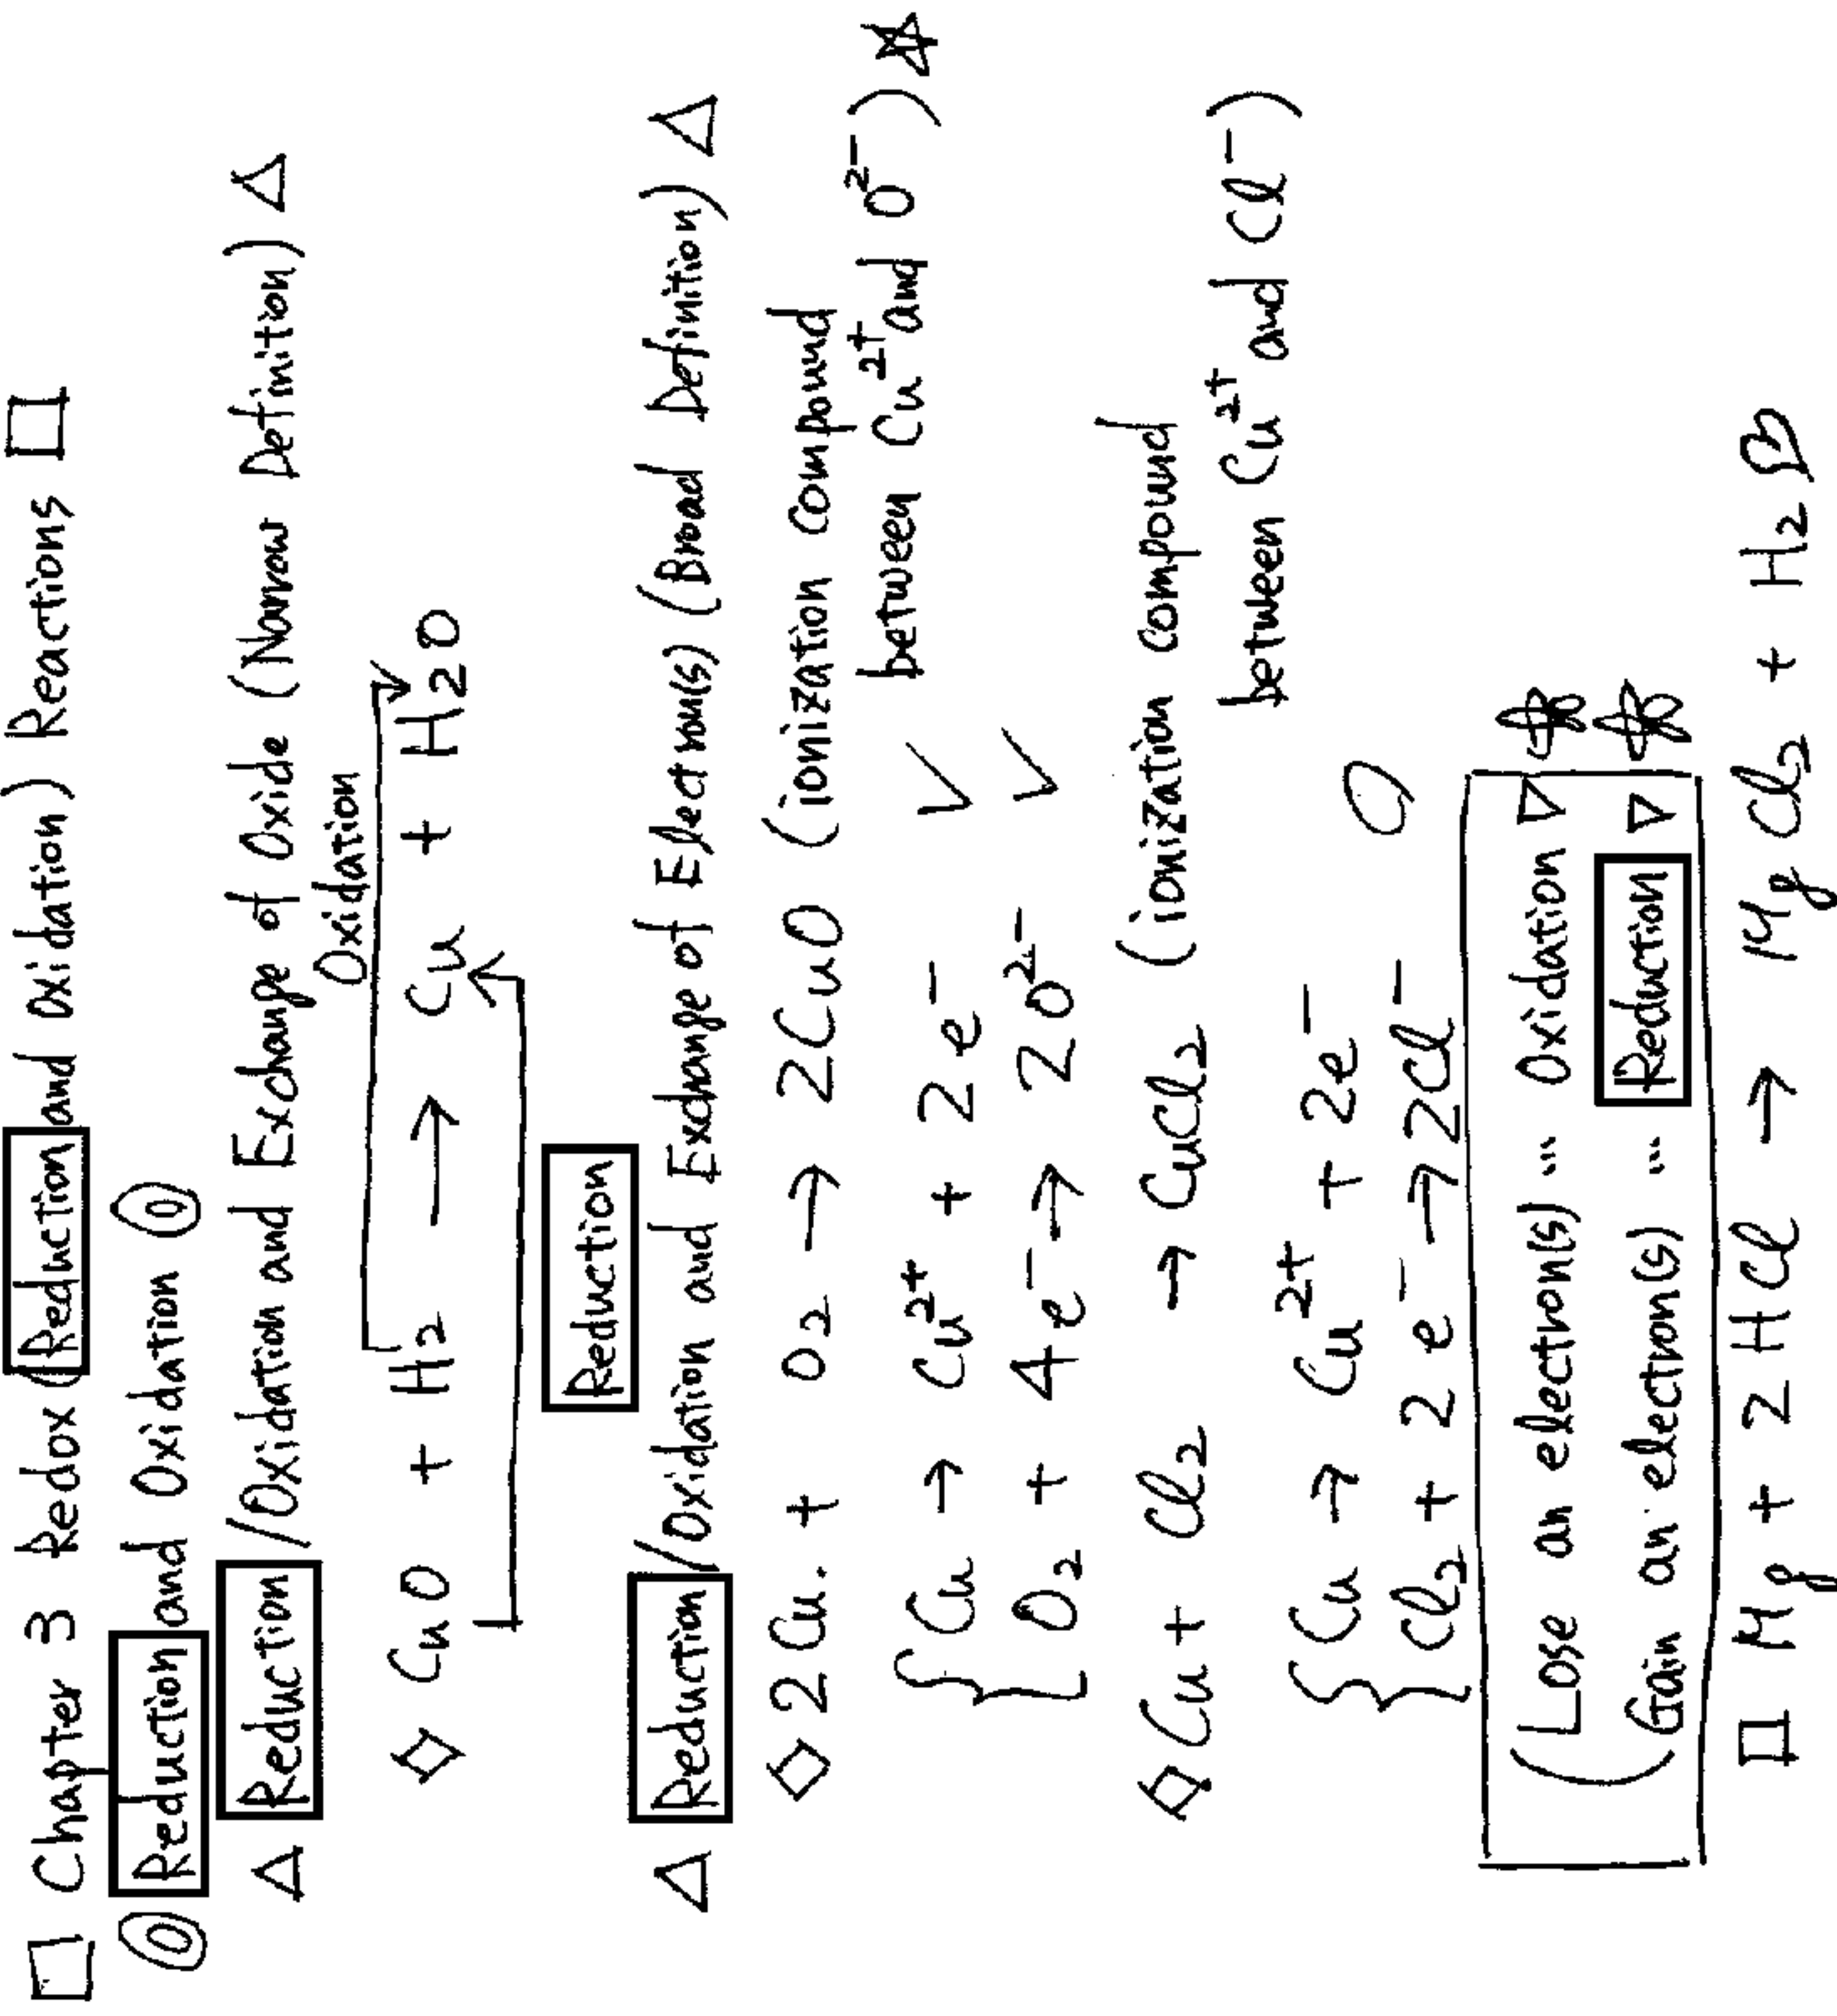 □ Chapter 3 Redox (Reduction and Oxidation) Reactions □
◎ Reduction and Oxidation ◎
△ Reduction//Oxidation and Exchange of Oxide (Narrow Definition) △
Oxidation
◇ CuO + H₂ → Cu + H₂O
Reduction
△ Reduction//Oxidation and Exchange of Electron(s) (Broad Definition) △
◇ 2Cu. + O₂ → 2CuO (ionization compound
between Cu²⁺ and O²⁻) ☆
{ Cu → Cu²⁺ + 2e⁻ ✓
O₂ + 4e⁻ → 2O²⁻ ✓
◇ Cu + Cl₂ → CuCl₂ (ionization compound
between Cu²⁺ and Cl⁻)
{ Cu → Cu²⁺ + 2e⁻ ○
Cl₂ + 2e⁻ → 2Cl⁻
(Lose an electron(s) ... Oxidation ▽
Gain an electron(s) ... Reduction ▽
□ Mg + 2HCl → MgCl₂ + H₂ ♡